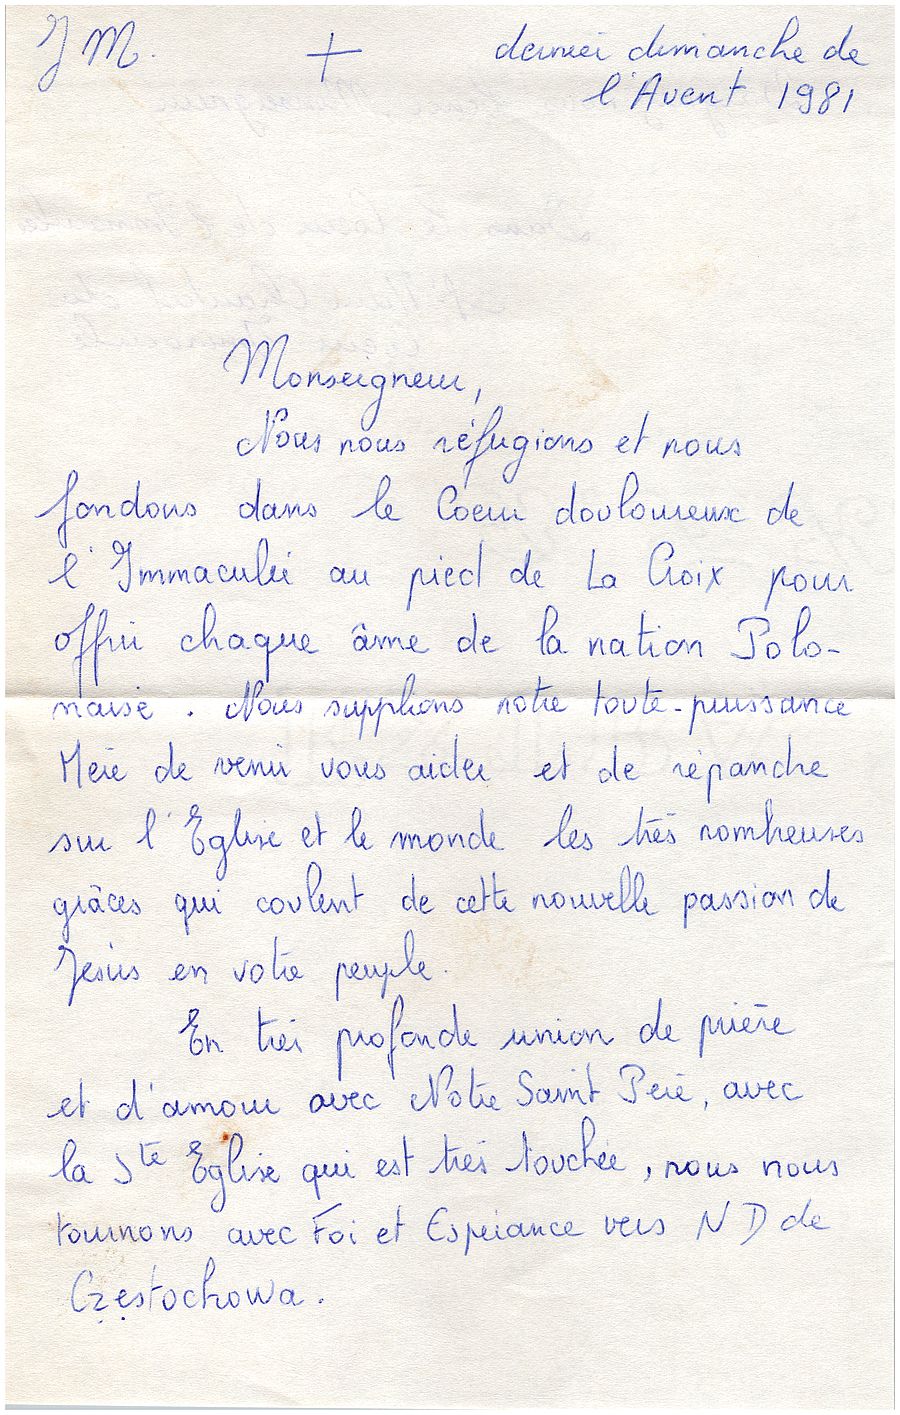 J M. + dernier dimanche de
l'Avent 1981
Monseigneur,
Nous nous réfugions et nous
fondons dans le Coeur douloureux de
l'Immaculée au pied de La Croix pour
offrir chaque âme de la nation Polo-
naise. Nous supplions notre toute-puissance
Mère de venir vous aider et de répandre
sur l'Eglise et le monde les très nombreuses
grâces qui coulent de cette nouvelle passion de
Jésus en votre peuple.
En très profonde union de prière
et d'amour avec Notre Saint Père, avec
la Ste Eglise qui est très touchée, nous nous
tournons avec Foi et Espérance vers N D de
Częstochowa.